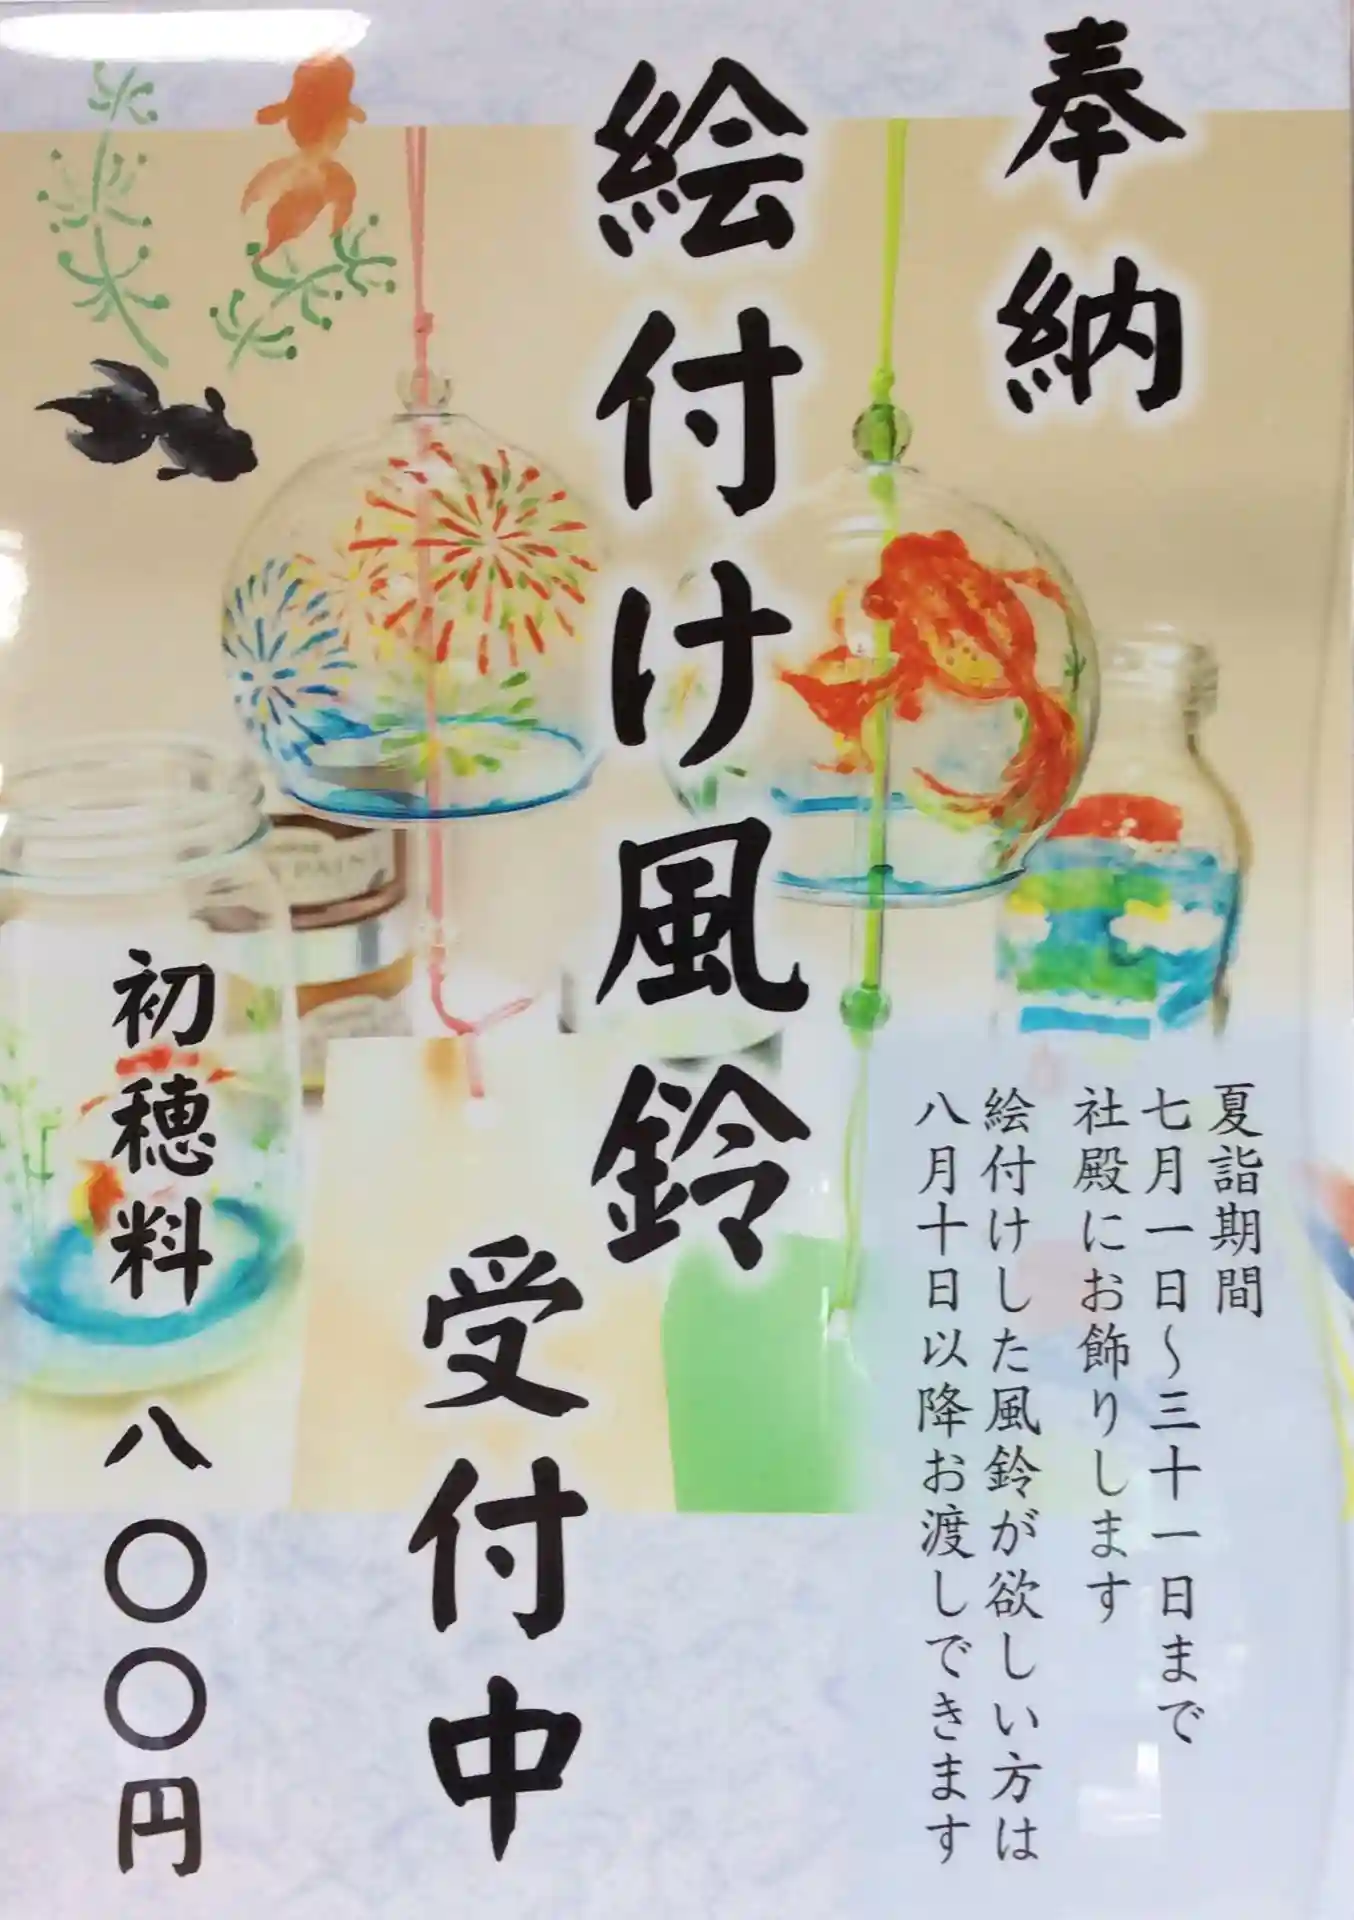 奉納
絵付け風鈴
受付中
夏詣期間
七月一日～三十一日まで
社殿にお飾りします
絵付けした風鈴が欲しい方は
八月十日以降お渡しできます
初穂料 八〇〇円